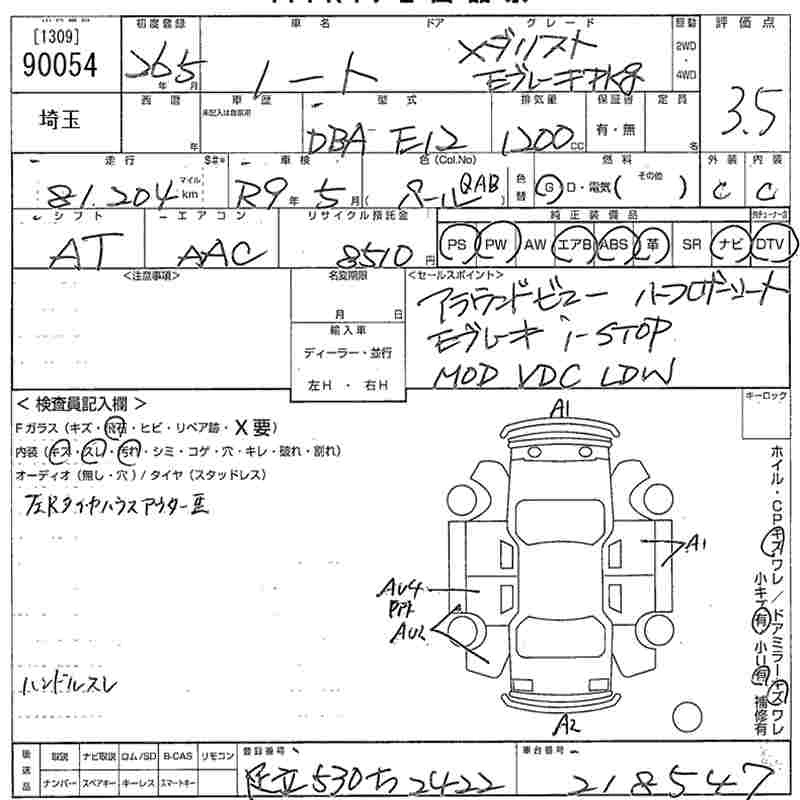 [1309]
90054
埼玉
初度登録 車名 ドア グレード 駆動 評価点
26 年 5 月 ノート メダリスト
エブレーキPKg
2WD
4WD
3.5
西暦 車歴 型式 排気量 保証書 定員
年 未記入は自家用 DBA E12 1200 CC 有・無 名
走行 S#* 車検 色(Col.No) 燃料 外装 内装
81.204 マイル km R9 年 5 月 パール QAB 色替 G D・電気( その他 ) C C
シフト エアコン リサイクル預託金 純正装備品
AT AAC 8510 円 PS PW AW エアB ABS 革 SR ナビ DTV
<注意事項> 名変期限 <セールスポイント>
月 日
アラウンドビュー ハーフレザーシート
輸入車
エブレーキ i-STOP
ディーラー・並行
MOD VDC LDW
左H ・ 右H
< 検査員記入欄 > キーロック
Fガラス (キズ・飛石・ヒビ・リペア跡・X要)
内装 (キズ・スレ・汚れ・シミ・コゲ・穴・キレ・破れ・割れ)
オーディオ (無し・穴) / タイヤ (スタッドレス)
左Rタイヤハウスアウター歪
ハンドルスレ
A1
A1
AU4
PPT
AU2
A2
ホイル・CPキズワレ / ドアミラーキズワレ
小キズ有 小U有 補修有
後送品 取説 ナビ取説 ロム/SD B-CAS リモコン
ナンバー スペアキー キーレス スマートキー
登録番号 車台番号
足立530ち2422 218547